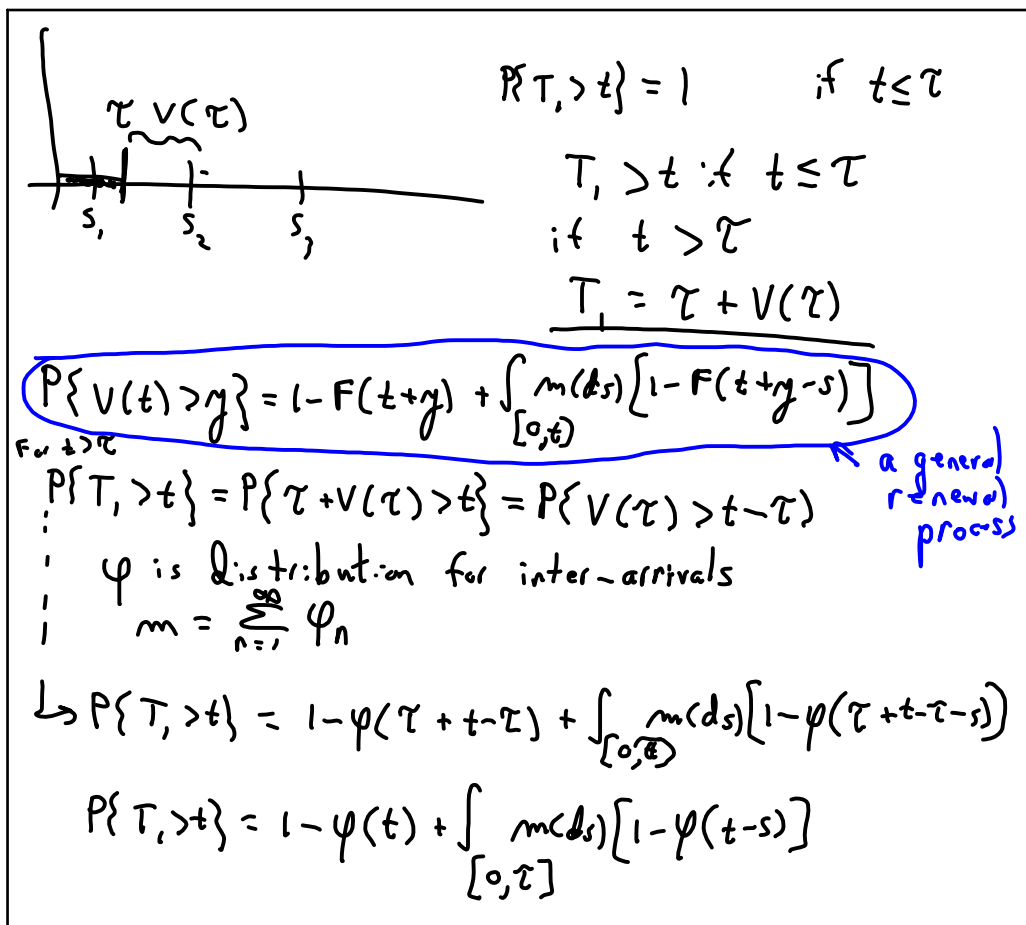 τ V(τ)
S₁ S₂ S₃
P{T₁ > t} = 1 if t ≤ τ
T₁ > t if t ≤ τ
if t > τ
T₁ = τ + V(τ)
P{V(t) > y} = 1 - F(t+y) + ∫_[0,t] m(ds)[1 - F(t+y-s)]
a general
renewal
process
For t > τ
P{T₁ > t} = P{τ + V(τ) > t} = P{V(τ) > t - τ}
φ is distribution for inter-arrivals
m = ∑_{n=1}^{∞} φₙ
↳ P{T₁ > t} = 1 - φ(τ + t - τ) + ∫_[0,τ] m(ds)[1 - φ(τ + t - τ - s)]
P{T₁ > t} = 1 - φ(t) + ∫_[0,τ] m(ds)[1 - φ(t-s)]